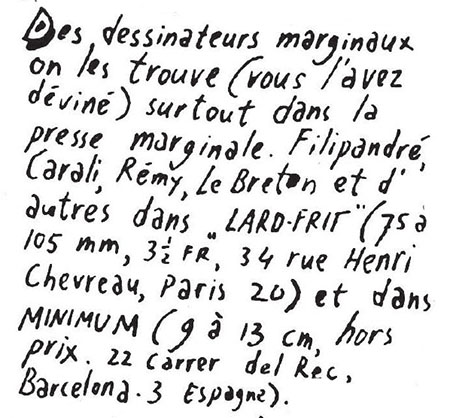 Des dessinateurs marginaux
on les trouve (vous l'avez
déviné) surtout dans la
presse marginale. Filipandré,
Carali, Rémy, Le Breton et d'
autres dans „LARD-FRIT" (75 à
105 mm, 3½ FR, 34 rue Henri
Chevreau, Paris 20) et dans
MINIMUM (9 à 13 cm, hors
prix. 22 Carrer del Rec,
Barcelona. 3 Espagne).